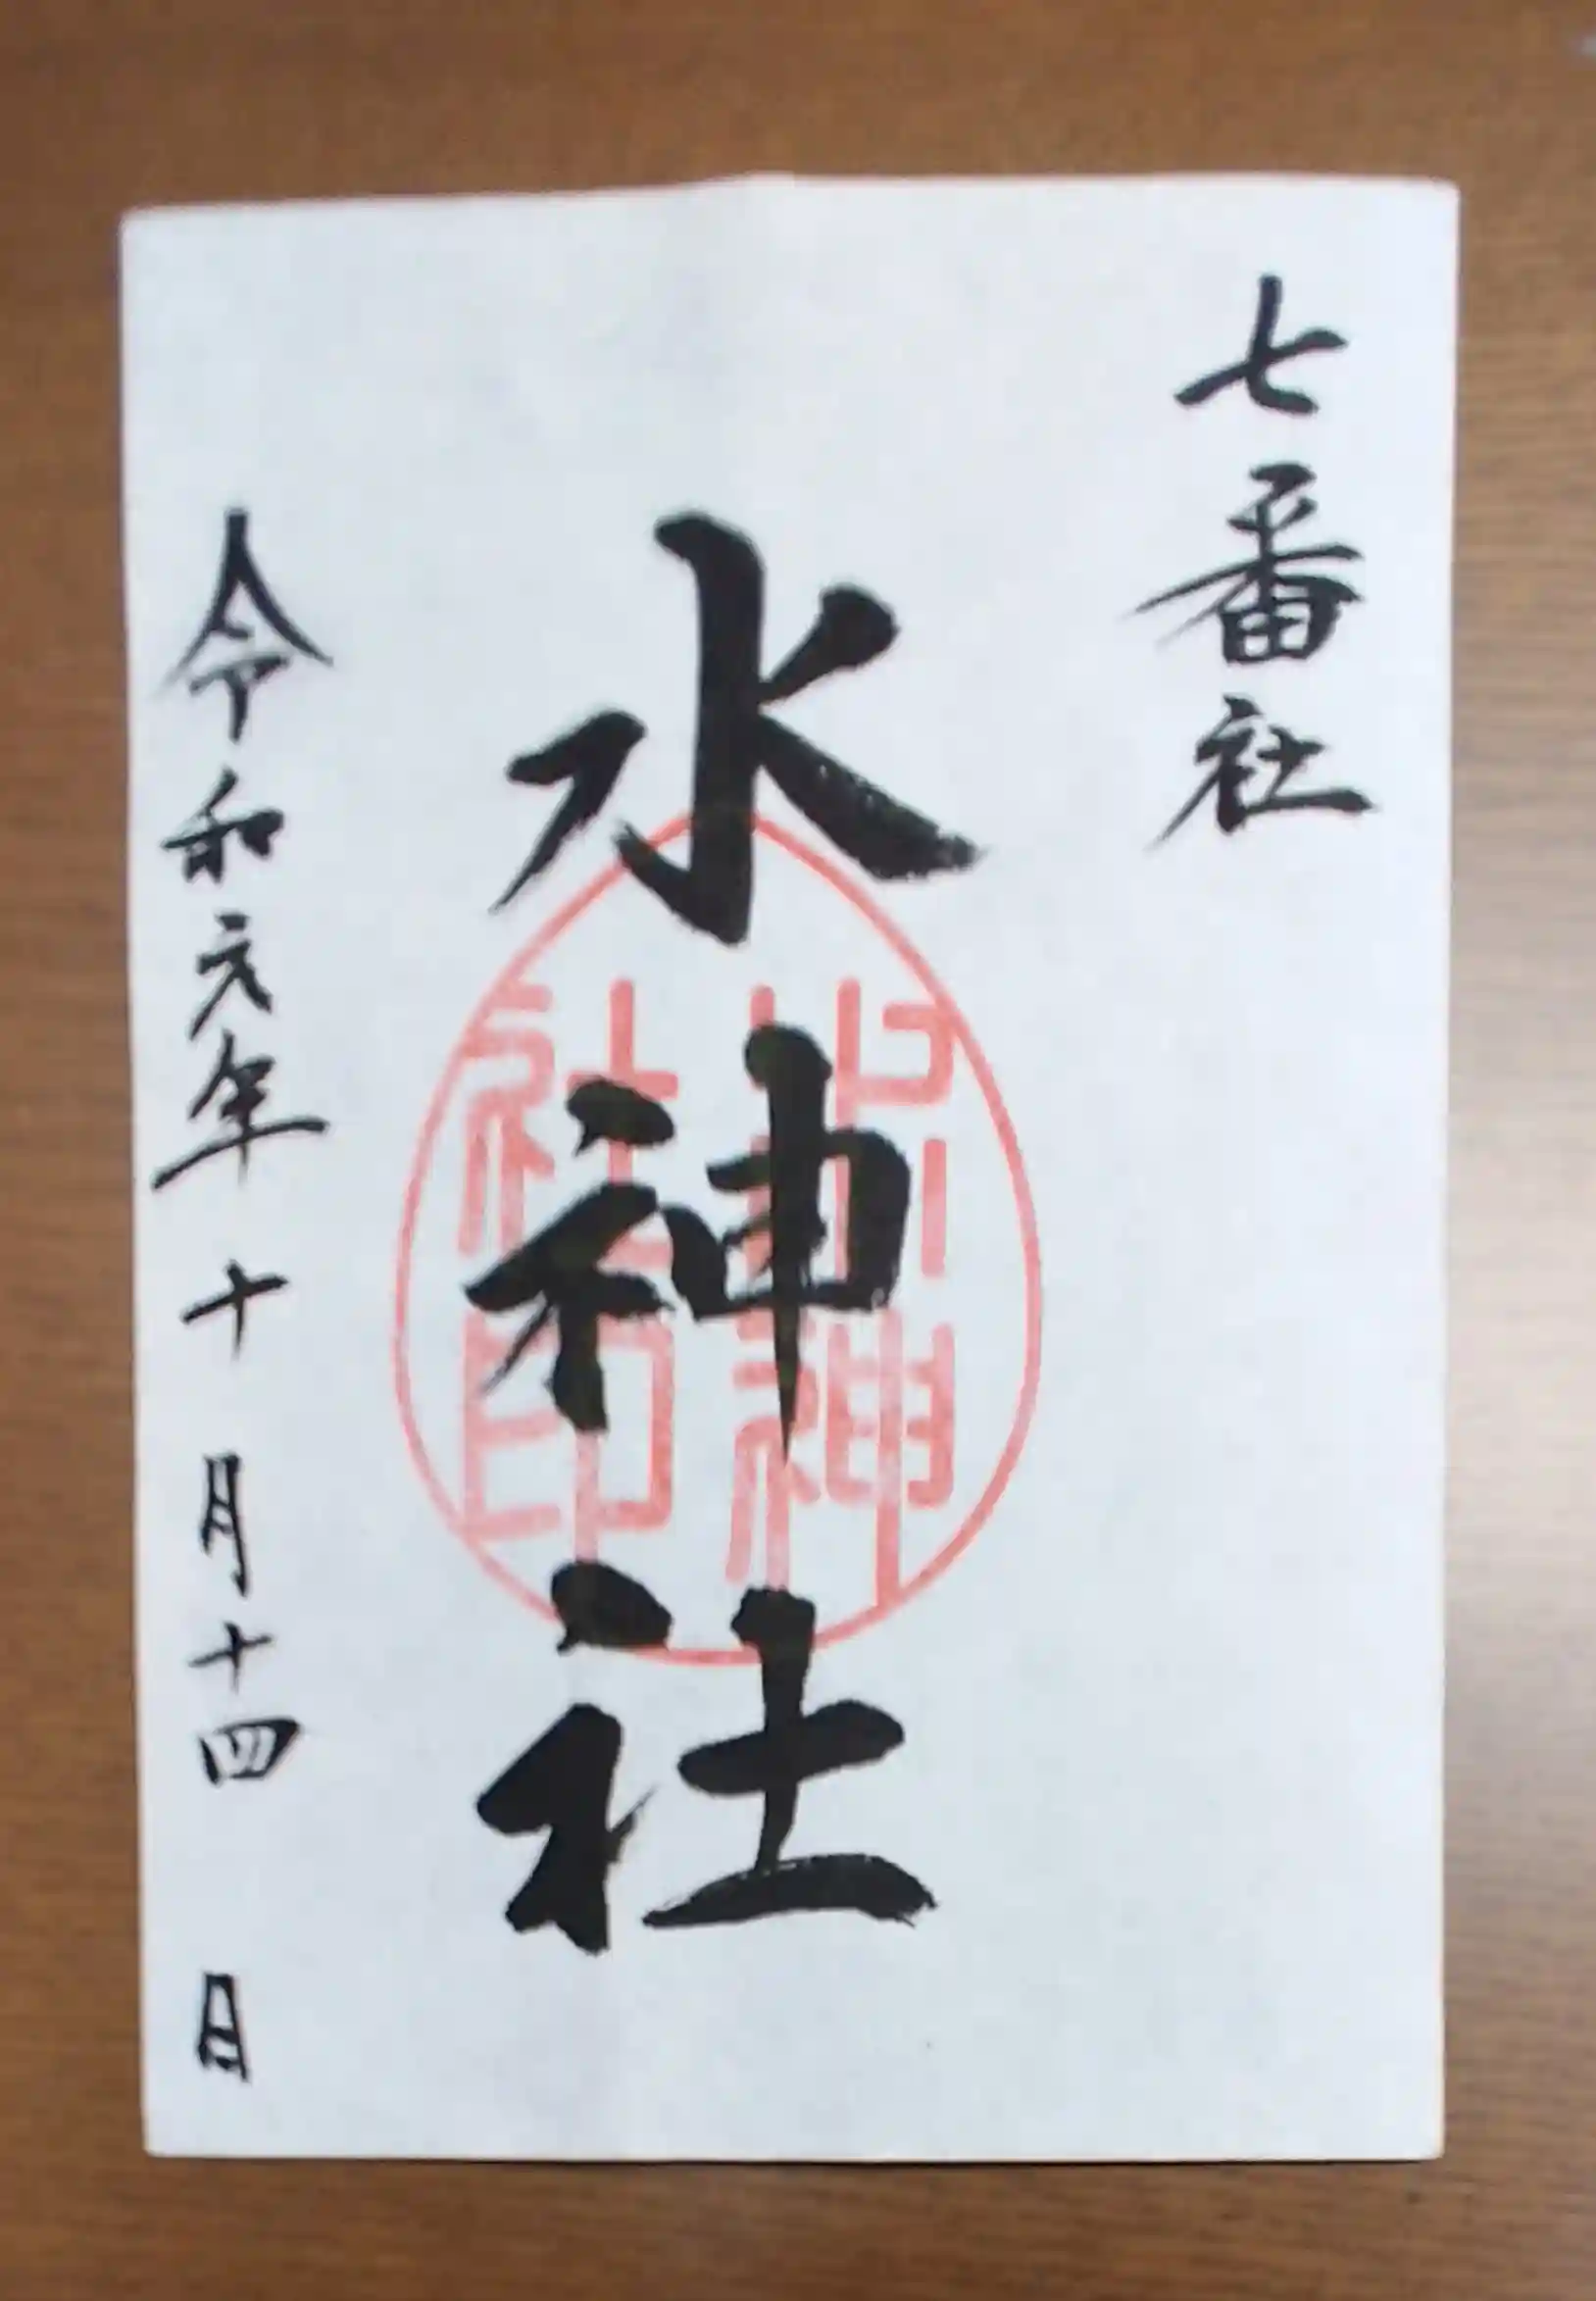 七番社
水神社
水神
社印
令和元年十月十四日